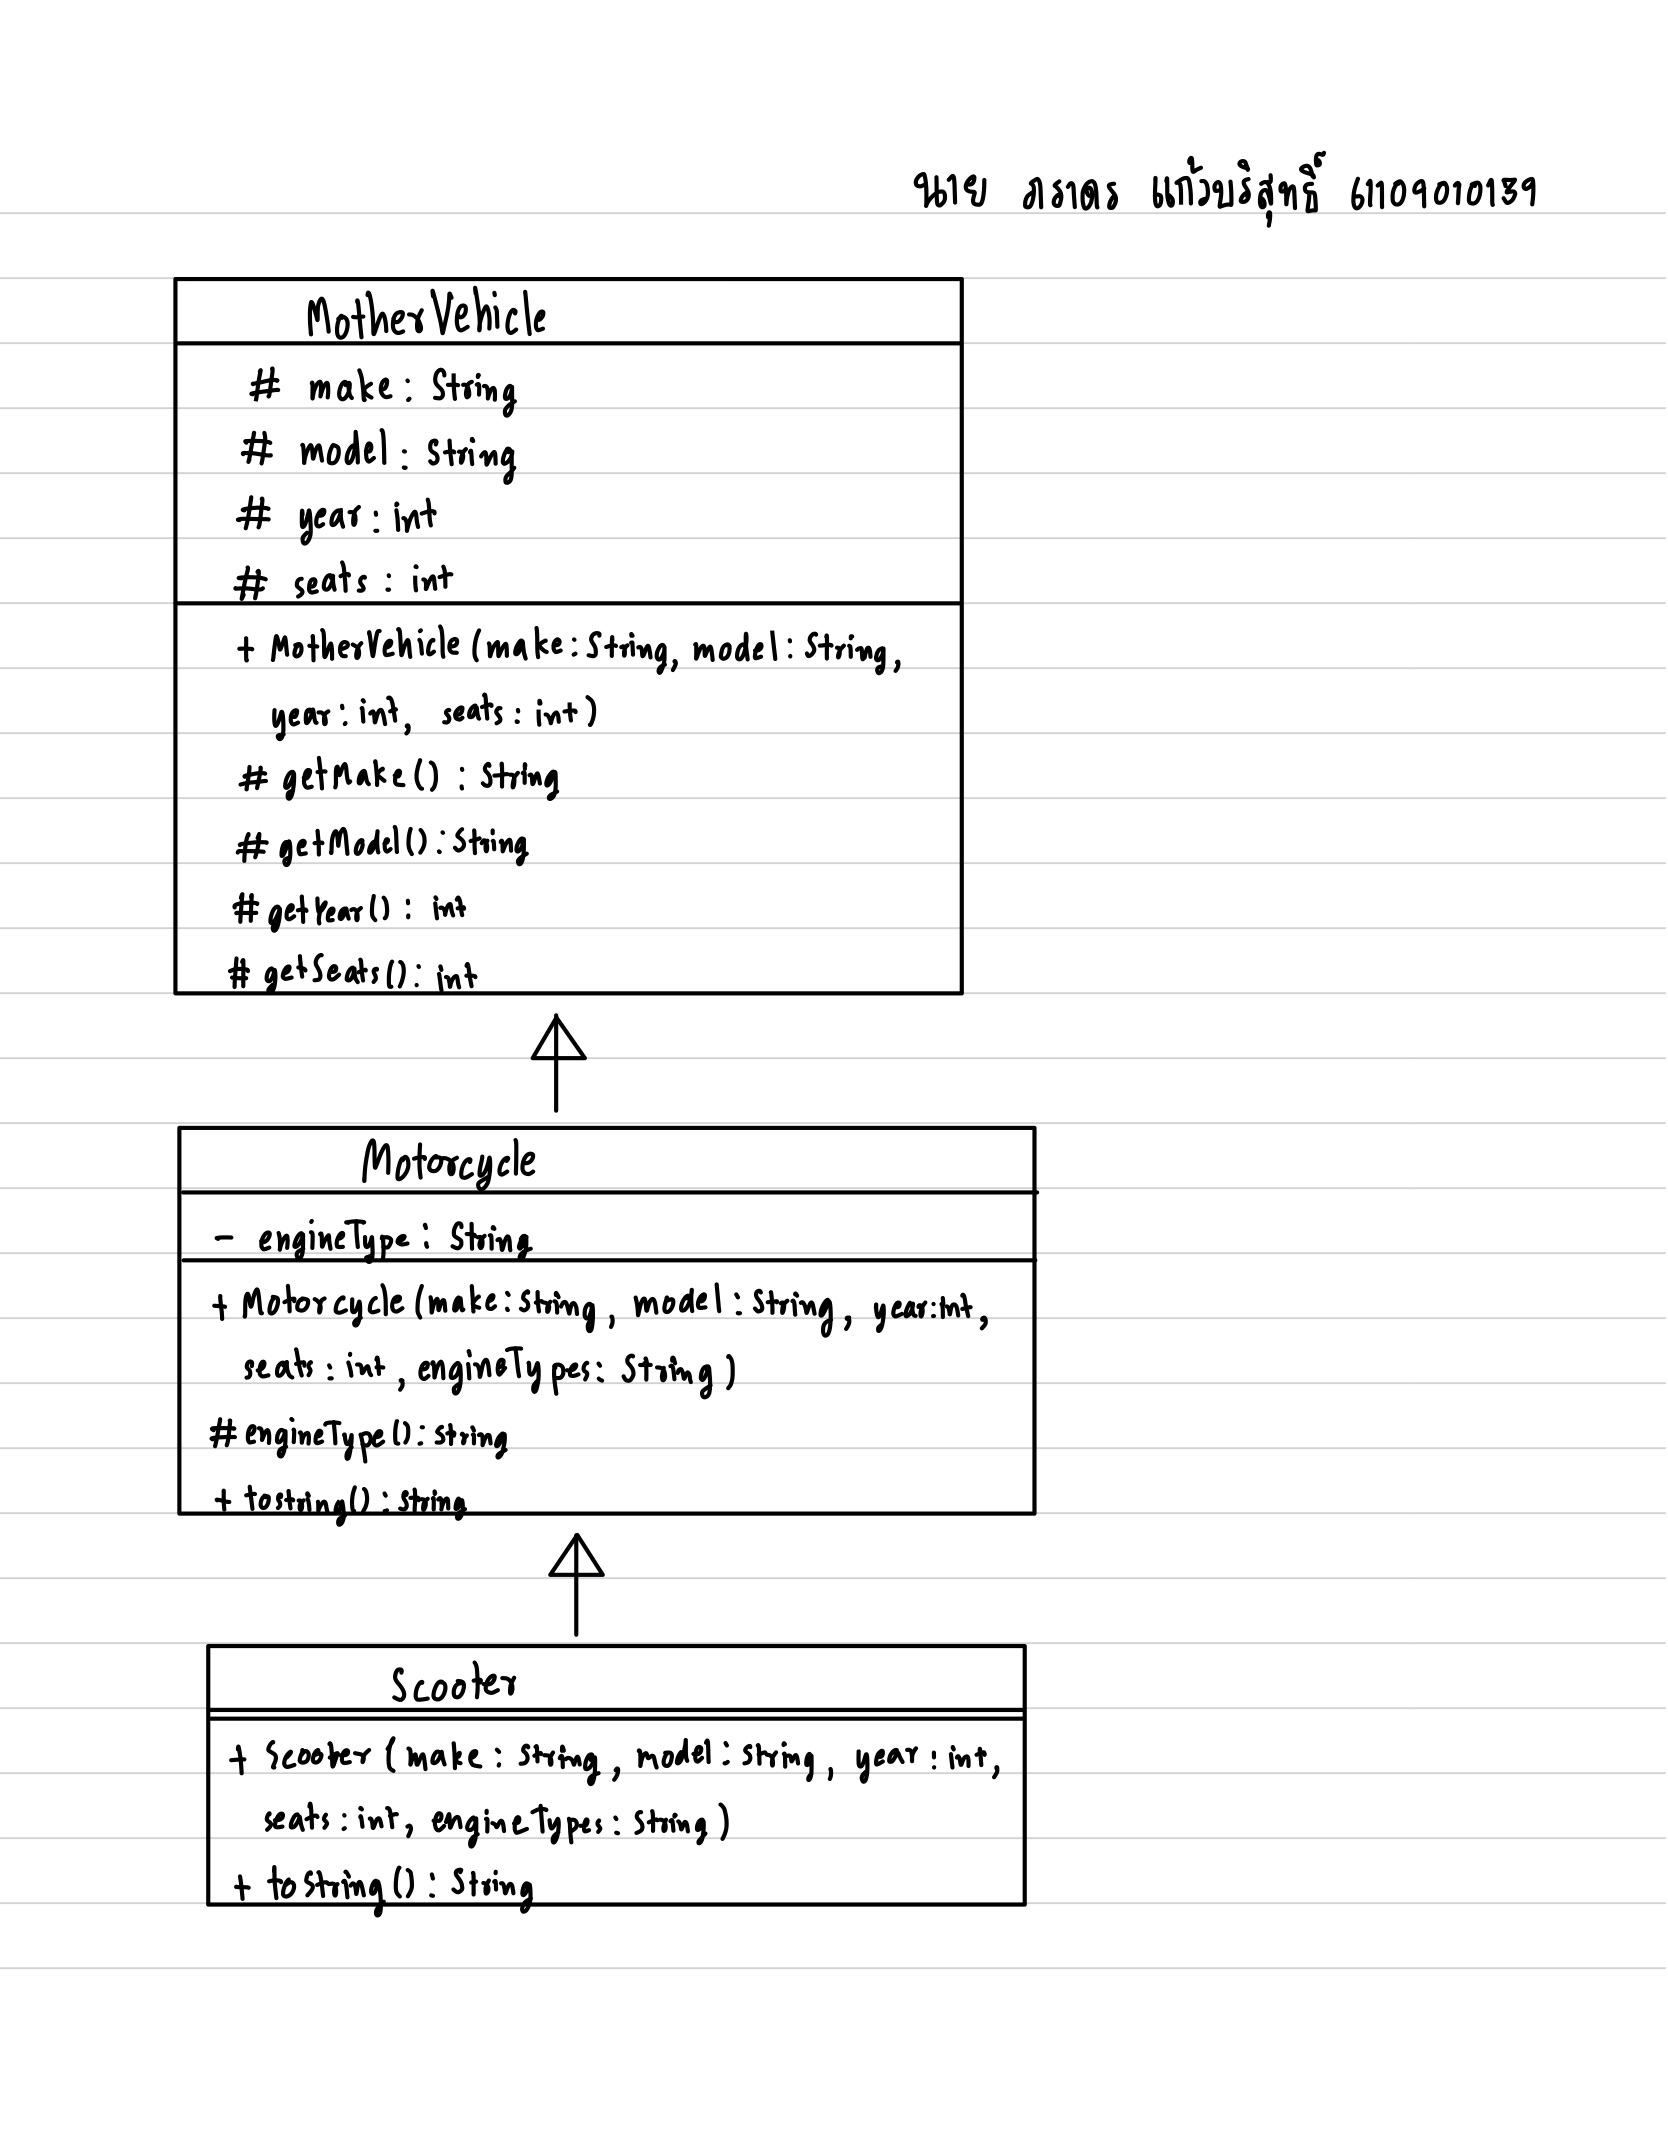 นาย ภราดร แก้วบริสุทธิ์ 61109010139
MotherVehicle
# make : String
# model : String
# year : int
# seats : int
+ MotherVehicle (make : String, model : String,
year : int, seats : int)
# getMake() : String
# getModel() : String
# getYear() : int
# getSeats() : int
Motorcycle
- engineType : String
+ Motorcycle (make : String, model : String, year : int,
seats : int, engineTypes : String)
# engineType() : String
+ tostring() : String
Scooter
+ Scooter (make : String, model : String, year : int,
seats : int, engineTypes : String)
+ toString() : String